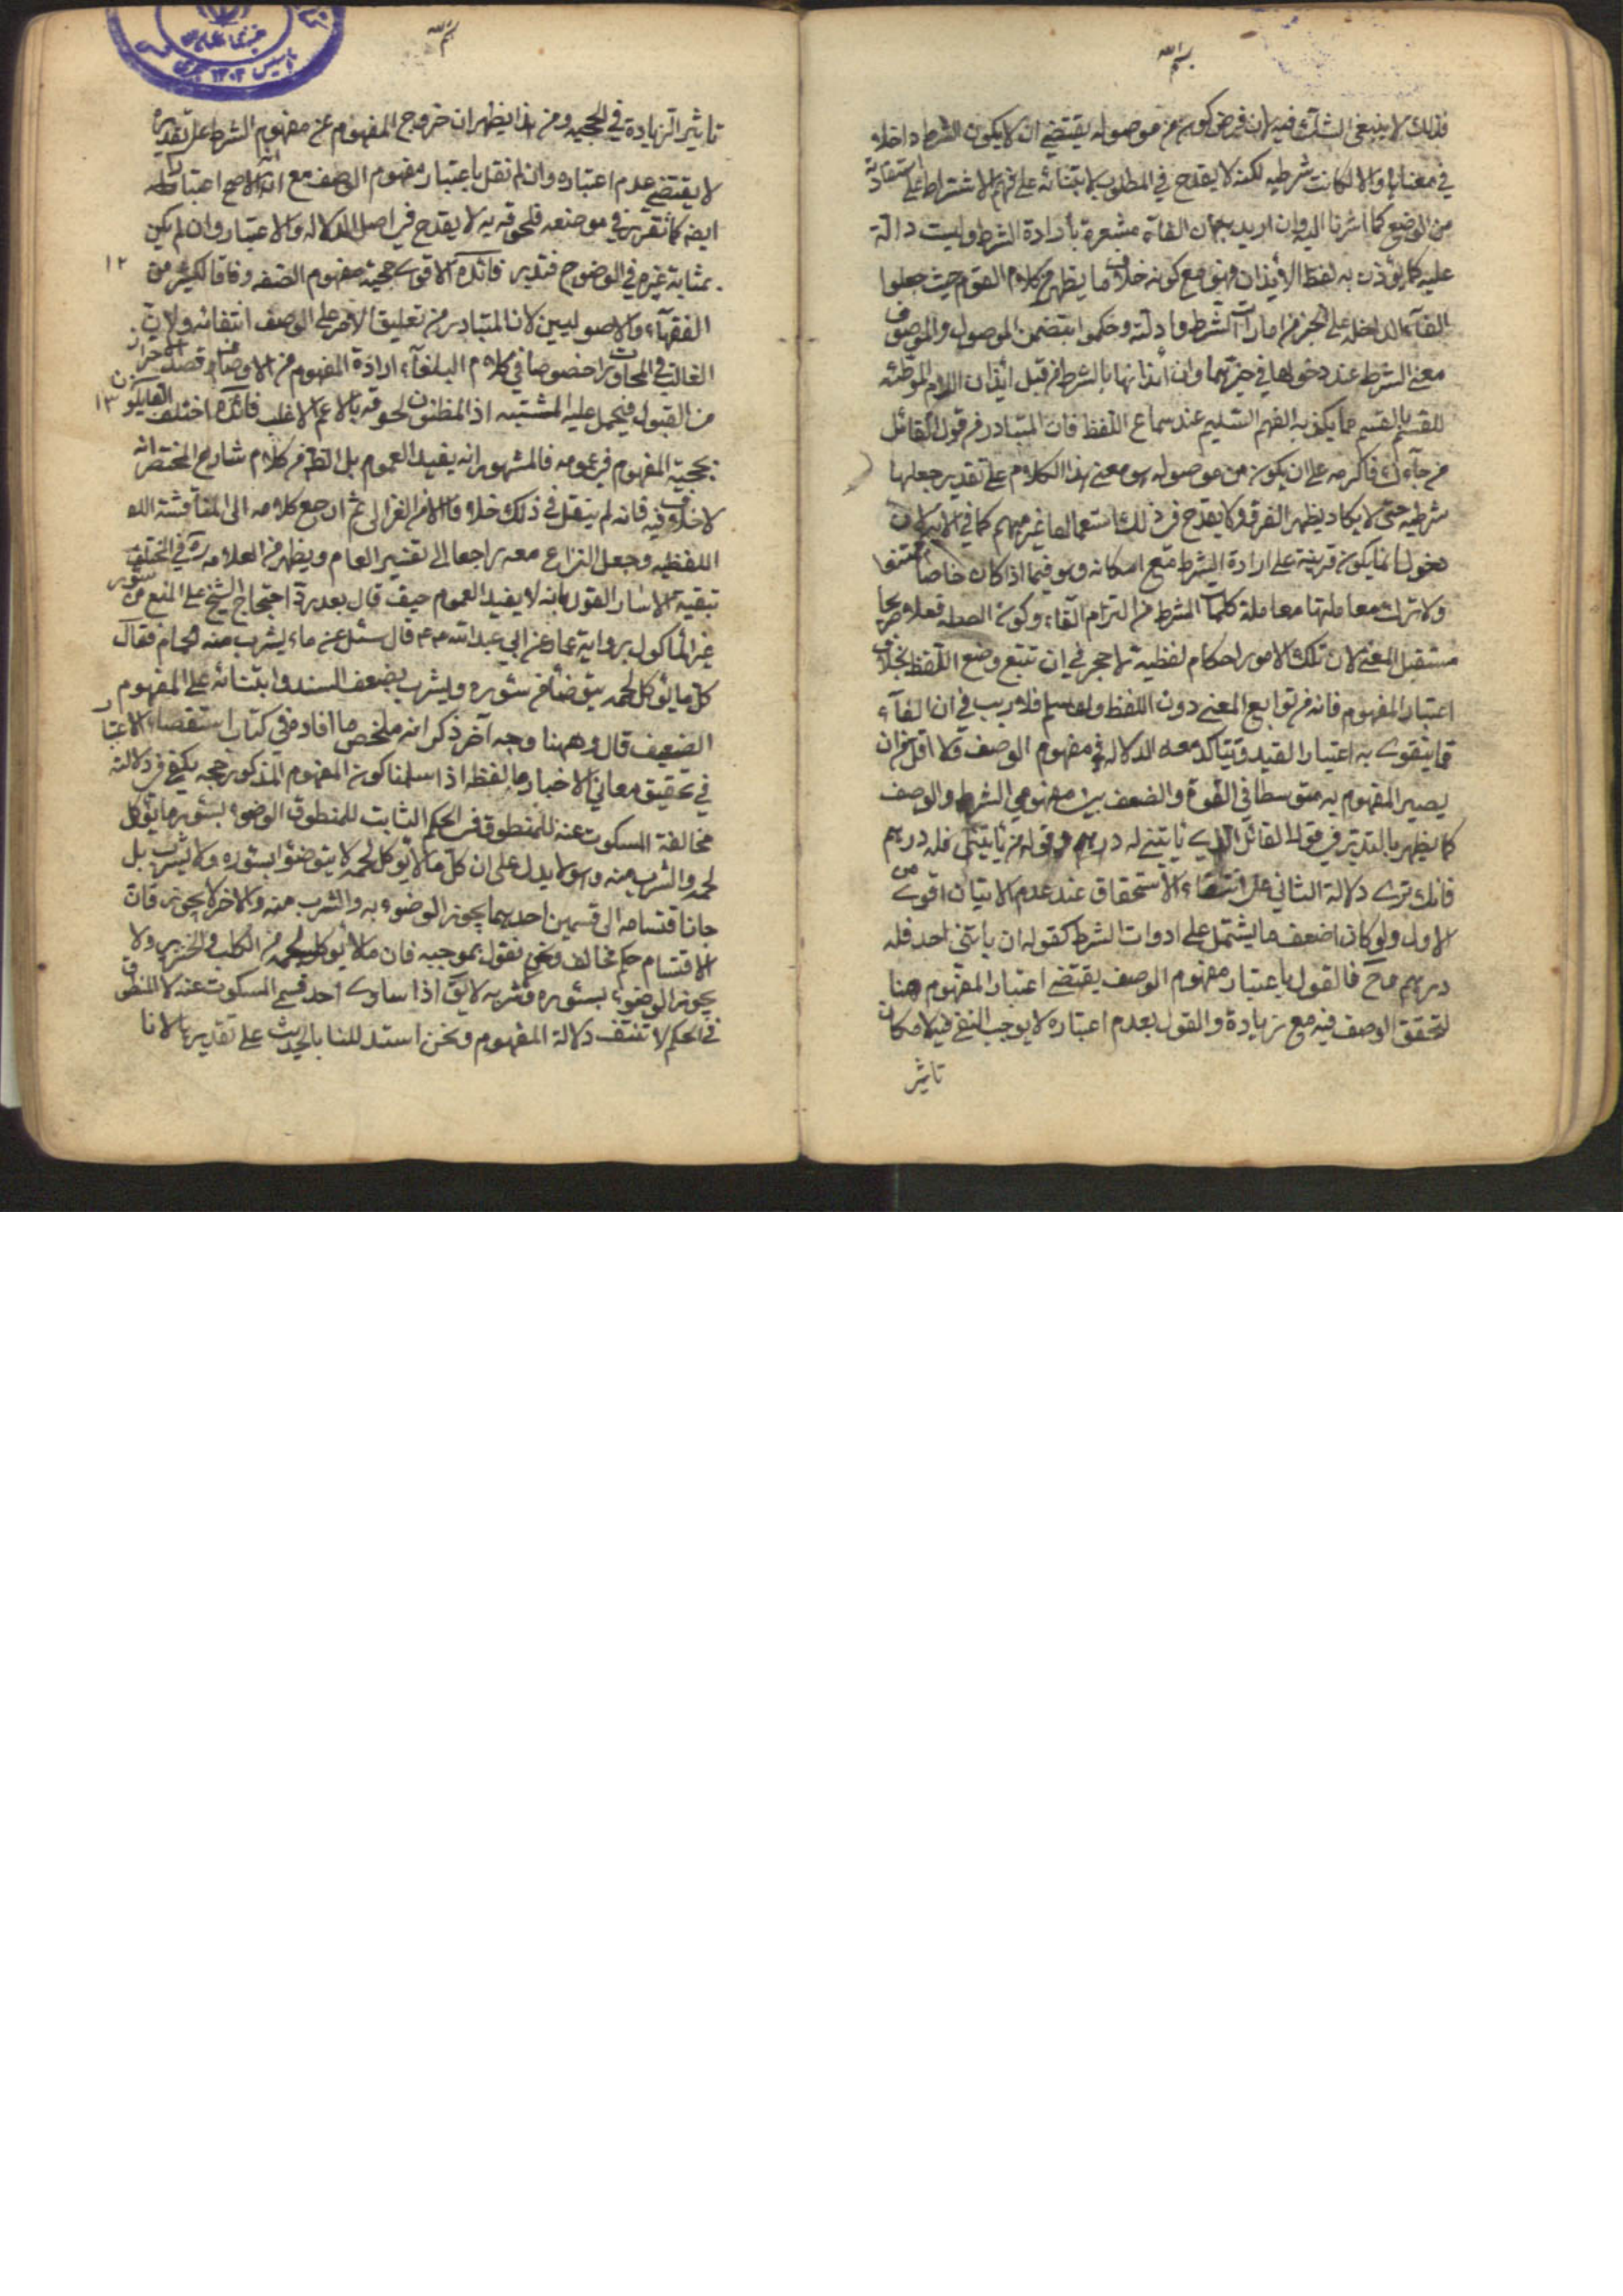 بسم الله
فذلك لا ينبغي الشك فيه لان فرض كونه من موصوله يقتضي ان لا يكون الشرط داخلا
في معناها والا لكانت شرطيه لكنه لا يقدح في المطلوب لابتنائه على فهم الاشتراط لا على استفادته
من الوضع كما اشرنا اليه وان اريد به ان الفاء مشعرة بارادة الشرط وليست دالة
عليه كما يؤذن به لفظ الايذان فهو مع كونه خلاف ما يظهر من كلام القوم حيث جعلوا
الفاء الداخله على الخبر من امارات الشرط وادلته وحكموا بتضمن الموصول والموصوف
معنى الشرط عند دخولها في خبرهما وان ايذانها بالشرط من قبيل ايذان اللام الموطئه
للقسم بالقسم مما يكذبه الفهم السليم عند سماع اللفظ فان المتبادر من قول القائل
من جاءك فاكرمه على ان يكون من موصوله هو معنى هذا الكلام على تقدير جعلها
شرطيه حتى لا يكاد يظهر الفرق ولا يقدح في ذلك استعمالها في غير مبهم كما في الايه لان
دخولها انما يكون قرينة على ارادة الشرط مع امكانه وهو فيما اذا كان خاصا منتف
ولا ترك معاملتها معاملة كلمات الشرط من التزام الفاء وكون الصله فعلا صريحا
مستقبل المعنى لان تلك الامور احكام لفظية لا حجر في ان تتبع وضع اللفظ بخلاف
اعتبار المفهوم فانه من توابع المعنى دون اللفظ ولو سلم فلا ريب في ان الفاء
مما يتقوى به اعتبار القيد ويتاكد معه الدلاله في مفهوم الوصف ولا اقل من ان
يصير المفهوم به متوسطا في القوة والضعف بين مفهومي الشرط والوصف
كما يظهر بالتدبر في قول القائل الذي ياتيني له درهم وقوله من ياتيني فله درهم
فانك ترى دلالة الثاني على انتفاء الاستحقاق عند عدم الاتيان اقوى من
الاول ولو كان اضعف مما يشتمل على ادوات الشرط كقوله ان ياتني احد فله
درهم وح فالقول باعتبار مفهوم الوصف يقتضي اعتبار المفهوم هنا
لتحقق الوصف فيه مع زيادة والقول بعدم اعتباره لا يوجب النفي فيه لامكان
تاثير
بسم الله
تاثير الزيادة في الحجيه ومن هذا يظهر ان خروج المفهوم عن مفهوم الشرط على تقديره
لا يقتضي عدم اعتباره وان لم نقل باعتبار مفهوم الوصف مع ان الاصح اعتباره
ايضا كما تقرر في موضعه فلحوقه به لا يقدح في اصل الدلاله والاعتبار وان لم يكن
بمثابة غيره في الوضوح فتدبر فائدة الاقوى حجية مفهوم الصفه وفاقا لكثير من
١٢
الفقهاء والاصوليين لان المتبادر من تعليق الامر على الوصف انتفائه ولان
الغالب في المحاورات خصوصا في كلام البلغاء ارادة المفهوم من الاوصاف وقصد الاحتراز
من القيود فيحمل عليه المشتبه اذ المظنون لحوقه بالاعم الاغلب فائدة اختلف القائلون
١٣
بحجية المفهوم في عمومه فالمشهور انه يفيد العموم بل الظ من كلام شارح المختصر انه
لا خلاف فيه فانه لم ينقل في ذلك خلافا الا من الغزالي ثم ارجع كلامه الى المناقشة
اللفظيه وجعل النزاع معه راجعا الى تفسير العام ويظهر من العلامه ره في المختلف
تبقية الاسار القول بانه لا يفيد العموم حيث قال بعد رد احتجاج الشيخ على المنع من سؤر
غير الماكول برواية عمار عن ابي عبد الله ع م قال سئل عن ماء يشرب منه الحمام فقال
كل ما يؤكل لحمه يتوضأ من سؤره ويشرب بضعف السند وابتنائه على المفهوم
الضعيف قال وههنا وجه آخر ذكر انه ملخص ما افاده في كتاب استقصاء الاعتبار
في تحقيق معاني الاخبار ما لفظه اذا سلمنا كون المفهوم المذكور حجه يكفي في دلالته
مخالفة المسكوت عنه للمنطوق في الحكم الثابت للمنطوق الوضوء بسؤر ما يؤكل
لحمه والشرب منه وهو لا يدل على ان كل ما لا يؤكل لحمه لا يتوضؤ بسؤره ولا يشرب بل
جاز اقتسامه الى قسمين احدهما يجوز الوضوء به والشرب منه والاخر لا يجوز فان
الاقتسام حكم مخالف ونحن نقول بموجبه فان ما لا يؤكل لحمه من الكلب والخنزير ولا
يجوز الوضوء بسؤره وشربه لا يق اذا ساوى احد قسمي المسكوت عنه للمنطوق
في الحكم لا تنتف دلالة المفهوم ونحن استدللنا بالحديث على تقديرها لانا